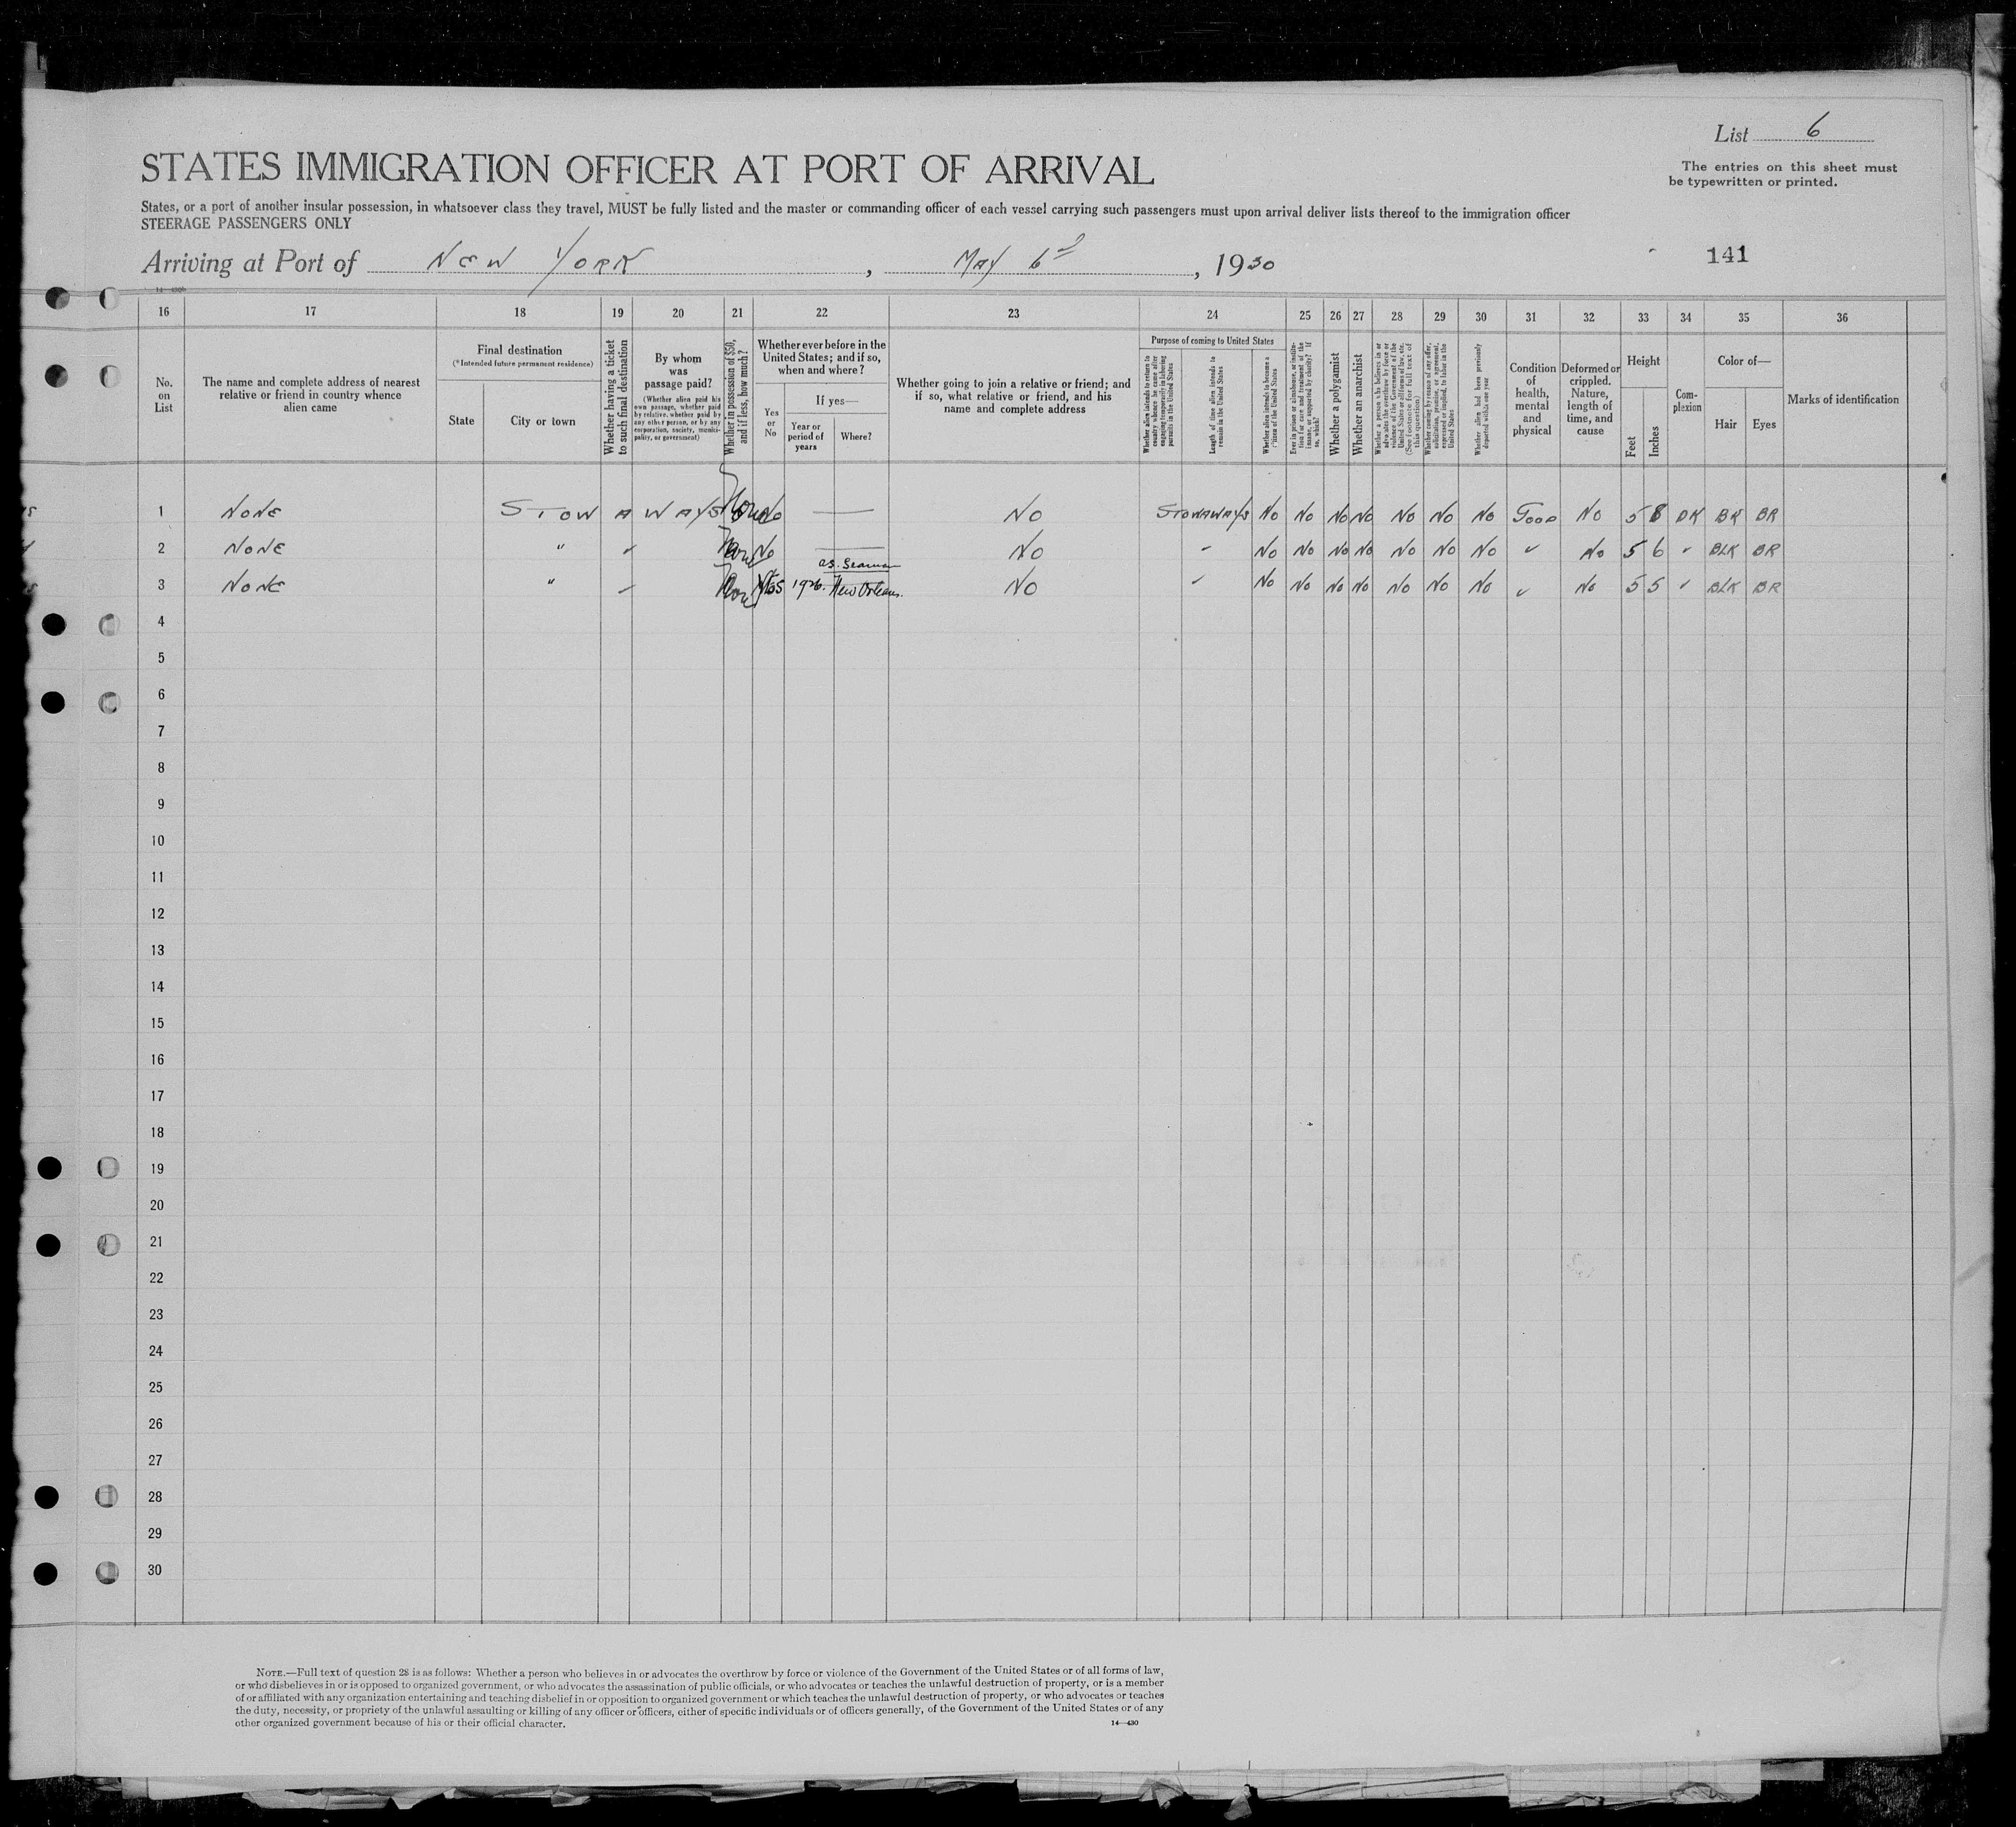 List 6
STATES IMMIGRATION OFFICER AT PORT OF ARRIVAL
The entries on this sheet must
be typewritten or printed.
States, or a port of another insular possession, in whatsoever class they travel, MUST be fully listed and the master or commanding officer of each vessel carrying such passengers must upon arrival deliver lists thereof to the immigration officer
STEERAGE PASSENGERS ONLY
Arriving at Port of NEW YORK, MAY 6, 1930
141
16 17 18 19 20 21 22 23 24 25 26 27 28 29 30 31 32 33 34 35 36
No. on List
The name and complete address of nearest
relative or friend in country whence
alien came
Final destination
(*Intended future permanent residence)
State
City or town
Whether having a ticket
to such final destination
By whom
was
passage paid?
(Whether alien paid his
own passage, whether paid
by relative, whether paid by
any other person, or by any
corporation, society, munici-
pality, or government)
Whether in possession of $50,
and if less, how much?
Whether ever before in the
United States; and if so,
when and where?
Yes
or
No
If yes—
Year or
period of
years
Where?
Whether going to join a relative or friend; and
if so, what relative or friend, and his
name and complete address
Purpose of coming to United States
Whether alien intends to return to
country whence he came after
engaging temporarily in laboring
pursuits in the United States
Length of time alien intends to
remain in the United States
Whether alien intends to become a
citizen of the United States
Ever in prison or almshouse, or institu-
tion for care and treatment of the
insane, or supported by charity? If
so, which?
Whether a polygamist
Whether an anarchist
Whether a person who believes in or
advocates the overthrow by force or
violence of the Government of the
United States or all forms of law, etc.
(See footnote for full text of
this question)
Whether coming by reason of any offer,
solicitation, promise, or agreement,
expressed or implied, to labor in the
United States
Whether alien had been previously
deported within one year
Condition
of
health,
mental
and
physical
Deformed or
crippled.
Nature,
length of
time, and
cause
Height
Feet
Inches
Com-
plexion
Color of—
Hair
Eyes
Marks of identification
1 NONE STOWAWAYS None No — NO STOWAWAYS No No No No No No No Good No 5 8 DK BR BR
2 NONE " ✓ None No — NO " No No No No No No No ✓ No 5 6 ✓ BLK BR
as Seaman
3 NONE " ✓ None Yes 1926. New Orleans. NO ✓ No No No No No No No ✓ No 5 5 ✓ BLK BR
4
5
6
7
8
9
10
11
12
13
14
15
16
17
18
19
20
21
22
23
24
25
26
27
28
29
30
NOTE.—Full text of question 28 is as follows: Whether a person who believes in or advocates the overthrow by force or violence of the Government of the United States or of all forms of law,
or who disbelieves in or is opposed to organized government, or who advocates the assassination of public officials, or who advocates or teaches the unlawful destruction of property, or is a member
of or affiliated with any organization entertaining and teaching disbelief in or opposition to organized government or which teaches the unlawful destruction of property, or who advocates or teaches
the duty, necessity, or propriety of the unlawful assaulting or killing of any officer or officers, either of specific individuals or of officers generally, of the Government of the United States or of any
other organized government because of his or their official character.
14—430